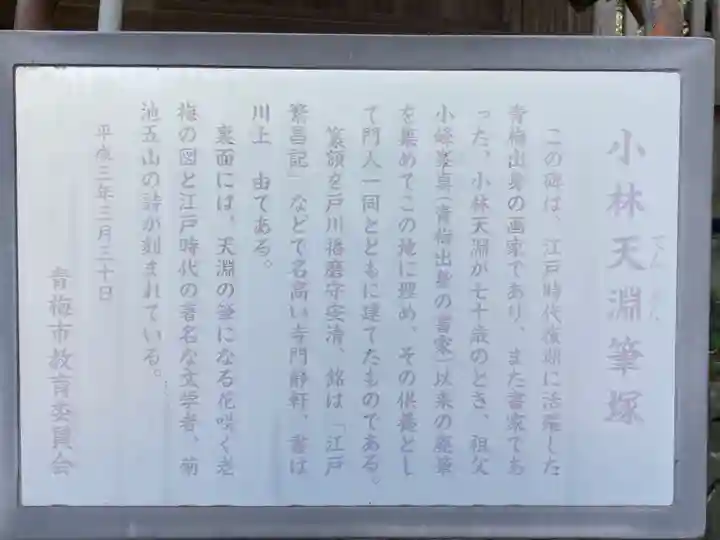 小林天淵筆塚
てんえん
この碑は、江戸時代後期に活躍した
青梅出身の画家であり、また書家であ
った、小林天淵が七十歳のとき、祖父
小峰峯真(青梅出身の書家)以来の廃筆
を集めてこの地に埋め、その供養とし
て門人一同とともに建てたものである。
篆額を戸川播磨守安清、銘は「江戸
繁昌記」などで名高い寺門静軒、書は
川上 由である。
裏面には、天淵の筆になる花咲く老
梅の図と江戸時代の著名な文学者、菊
池五山の詩が刻まれている。
平成三年三月三十日
青梅市教育委員会